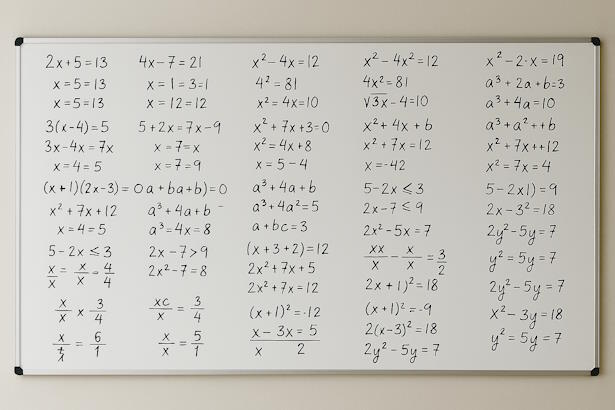 2x+5=13
x=5=13
x=5=13
3(x-4)=5
3x-4x=7x
x=4=5
(x+1)(2x-3)=0
x²+7x+12
x=4=5
5-2x≤3
x/x = x/x - 4/4
x/x × 3/4
= 6/1
4x-7=21
x=1=3=1
x=12=12
5+2x=7x-9
x=7=x
x=7=9
a+ba+b)=0
a³+4a+b -
a³=4x=8
2x-7>9
2x²-7=8
xc/x = 3/4
x/x = 5/1
x²-4x=12
4²=81
x²=4x=10
x²+7x+3=0
x²=4x+8
x=5-4
a³+4a+b
a³+4a²=5
a+bc=3
(x+3+2)=12
2x²+7x+5
2x²+7x=12
(x+1)²=-12
x-3x=5
x 2
x²-4x²=12
4x²=81
√3x-4=10
x²+4x+b
x²+7x=12
x=-42
5-2x≤3
2x-7≤9
2x²-5x=7
xx/x - x/x = 3/2
2x+1)²=18
(x+1)²=-9
2(x-3)²=18
2y²-5y=7
x²-2·x=19
a³+2a+b=3
a³+4a=10
a³+a²++b
x²+7x++12
x²=7x=4
5-2x1)=9
2x-3²=18
2y²-5y=7
y²=5y=7
2y²-5y=7
x²-3y=18
y²=5y=7